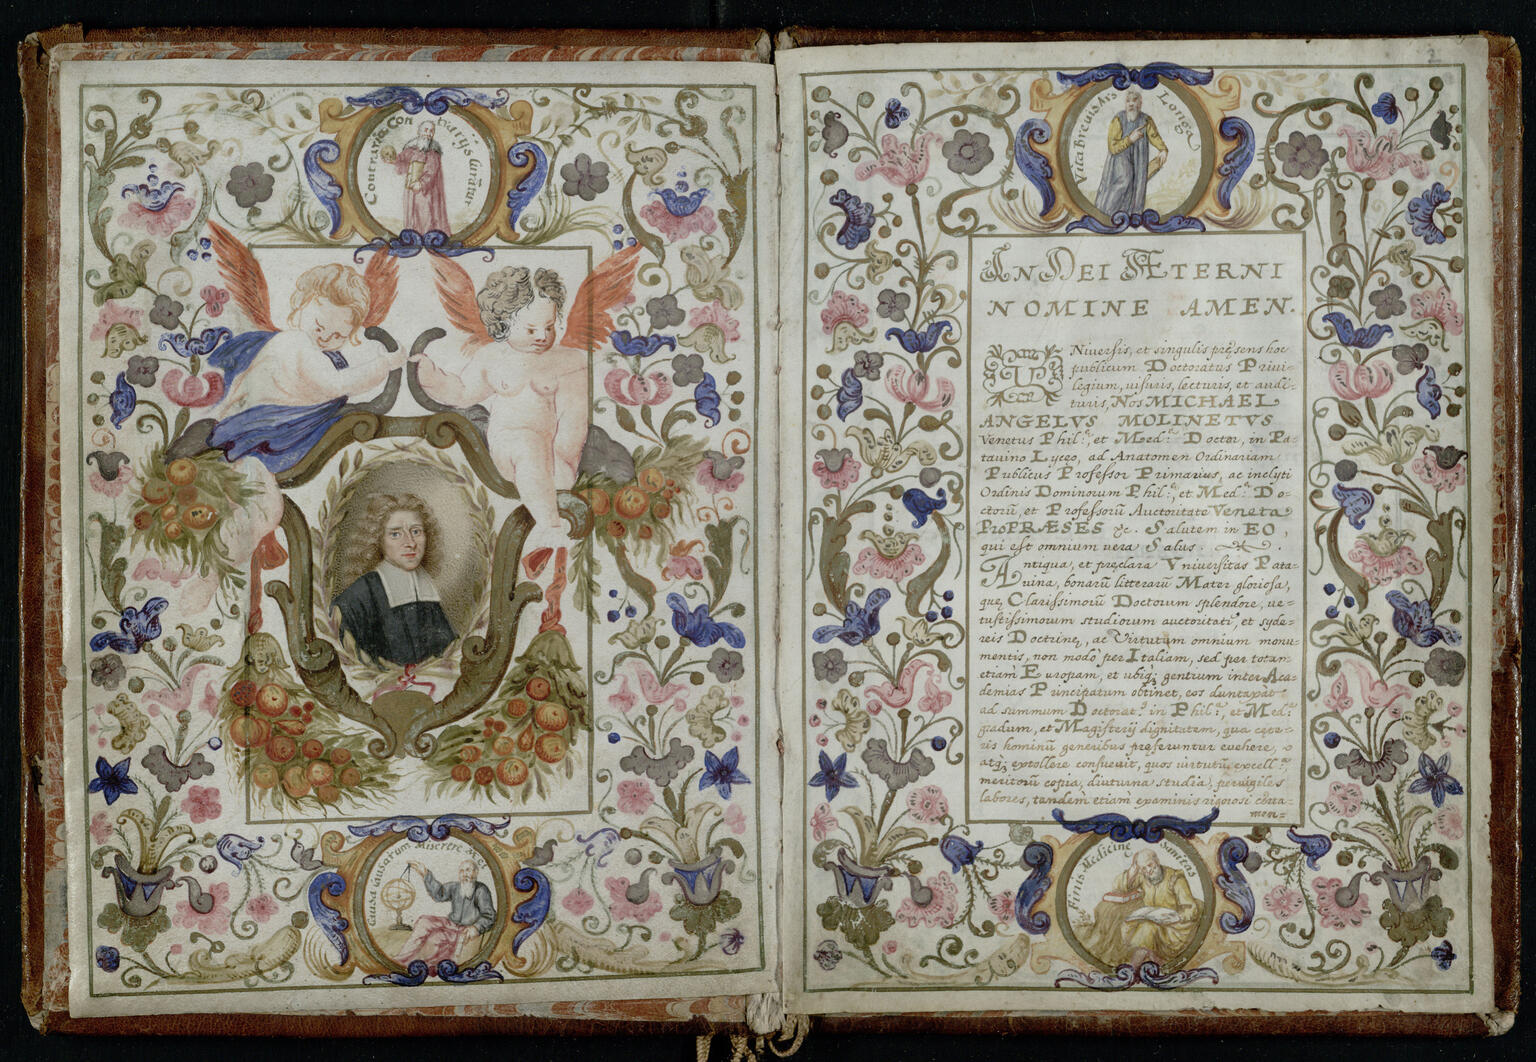 Contraria Con trarijs Curãtur
Causa Causarum Miserere Mei
2
Vita Breuis Ars Longa
IN DEI ÆTERNI
NOMINE AMEN.
UNiuersis, et singulis presens hoc
publicum Doctoratus Priui-
legium, uisuris, lecturis, et audi-
turis, Nos MICHAEL
ANGELVS MOLINETVS
Venetus Phil:ę, et Med:ę Doctor, in Pa-
tauino Lyceo, ad Anatomen Ordinariam
Publicus Professor Primarius, ac inclyti
Ordinis Dominorum Phil:ę, et Med:ę Do-
ctorũ, et Professorũ Auctoritate Veneta
ProPRÆSES &c. Salutem in EO,
qui est omnium uera Salus.
Antiqua, et pręclara Vniuersitas Pata-
uina, bonarũ litterarũ Mater gloriosa,
quę Clarissimorũ Doctorum splendore, ue-
tustissimorum studiorum auctoritati, et syde-
reis Doctrinę, ac Virtutum omnium monu-
mentis, non modò per Italiam, sed per totam
etiam Europam, et ubiq; gentium inter Aca-
demias Principatum obtinet, eos duntaxat
ad summum Doctorat:ę in Phil:ª, et Med:ª
gradum, et Magisterij dignitatem, qua cęte-
ris hominũ generibus preferuntur euehere,
atq; extollere consueuit, quos uirtutũ excell:ª,
meritorũ copia, diuturna studia, peruigiles
labores, tandem etiam examinis rigorosi certa-
men-
Finis Medicinę Sanitas